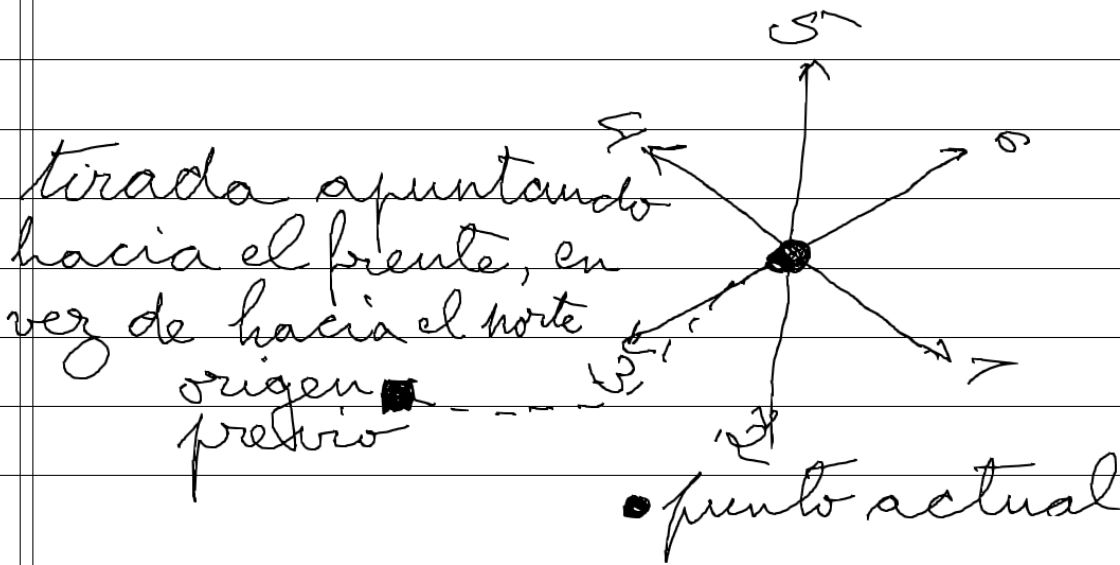 5
4
6
tirada apuntando
hacia el frente, en
vez de hacia el norte
origen
previo
3
7
2
punto actual